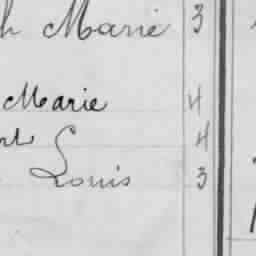 h Marie 3
Marie 4
rt 4
Louis 3